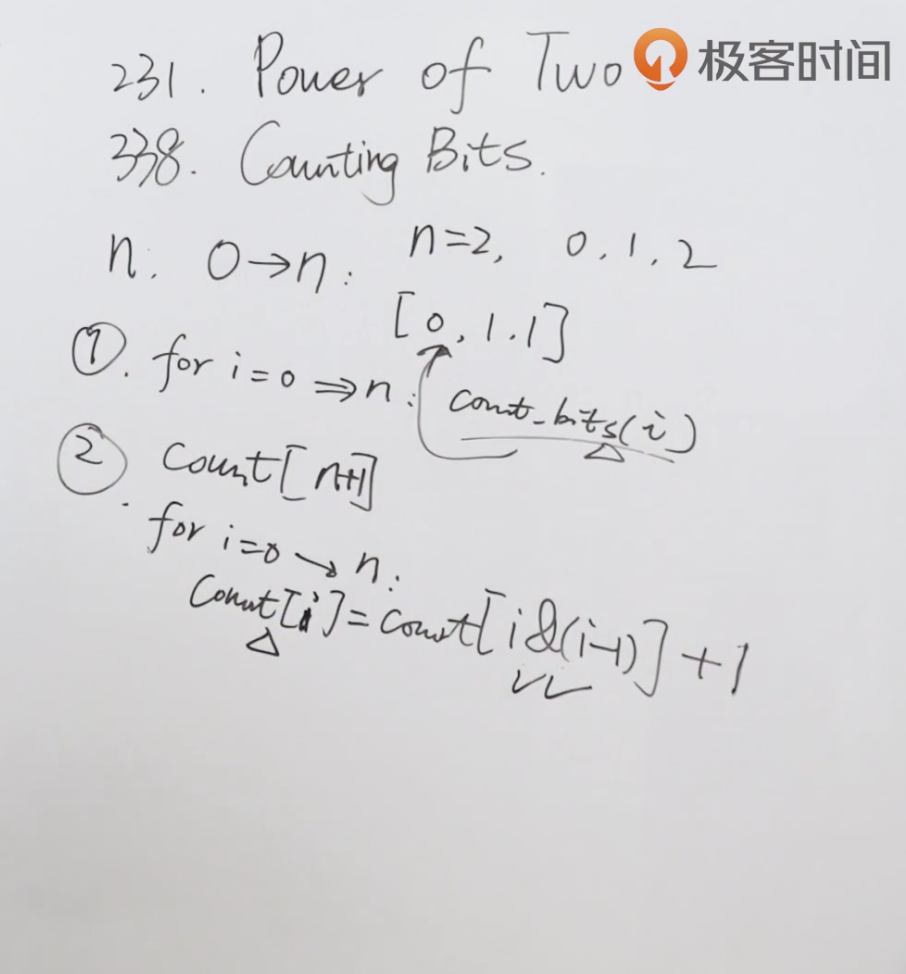 231. Power of Two
极客时间
338. Counting Bits.
n. 0→n: n=2, 0,1,2
[0,1,1]
①. for i=0 ⇒ n: count_bits(i)
② count[n+1]
for i=0 → n:
count[i]=count[i&(i-1)]+1